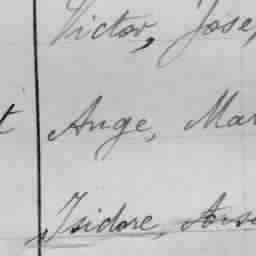 Victor, Jose
t Ange, Mar
Isidore,